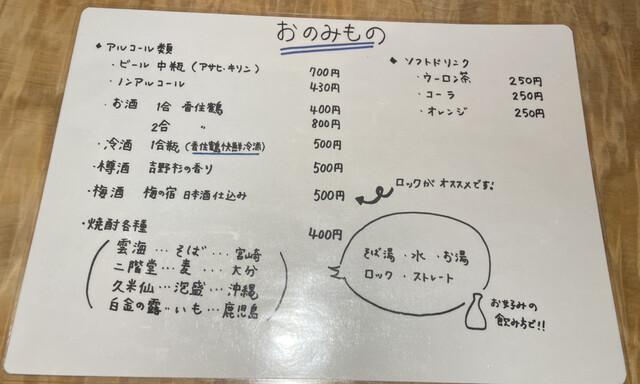 おのみもの
◆ アルコール類
・ビール 中瓶 (アサヒ・キリン) 700円
・ノンアルコール 430円
・お酒 1合 香住鶴 400円
2合 〃 800円
・冷酒 1合瓶 (香住鶴快鮮冷酒) 500円
・樽酒 吉野杉の香り 500円
・梅酒 梅の宿 日本酒仕込み 500円
ロックが オススメです!
・焼酎各種 400円
雲海…そば…宮崎
二階堂…麦…大分
久米仙…泡盛…沖縄
白金の露…いも…鹿児島
そば湯・水・お湯
ロック・ストレート
お好みの
飲み方で!!
◆ ソフトドリンク
・ウーロン茶 250円
・コーラ 250円
・オレンジ 250円